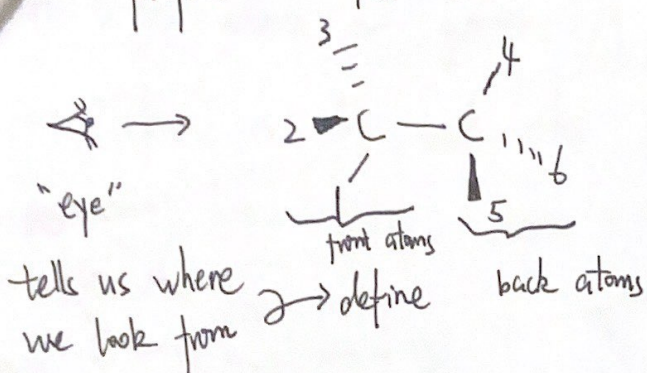 3
4
2 C — C
6
1
5
"eye"
front atoms
back atoms
tells us where
we look from → define